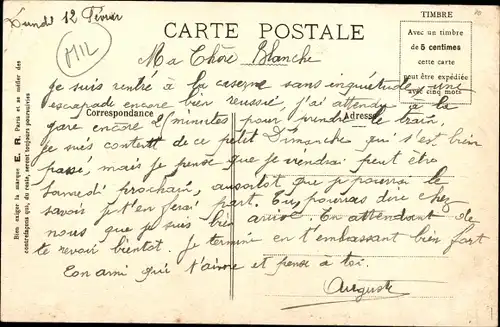 Lundi 12 Février
MIL
CARTE POSTALE
TIMBRE
Avec un timbre
de 5 centimes
cette carte
peut être expédiée
avec cinq mots
Bien exiger la marque E. R. Paris et se méfier des
contrefaçons qui, du reste, seront toujours poursuivies
Correspondance
Adresse
Ma Chère Blanche
Je suis rentré à la caserne sans inquiétude, une
escapade encore bien reussie, j'ai attendu à la
gare encore 21 minutes pour prendre le train.
je suis content de ce petit Dimanche qui s'est bien
passé, mais je pense que je viendrai peut être
Samedi prochain, aussitot que je pourrai le
savoir je t'en ferai part. Tu pourras dire chez
nous que je suis bien arrivé. En attendant de
te revoir bientot. Je termine en t'embrassant bien fort
Ton ami qui t'aime et pense à toi.
Auguste